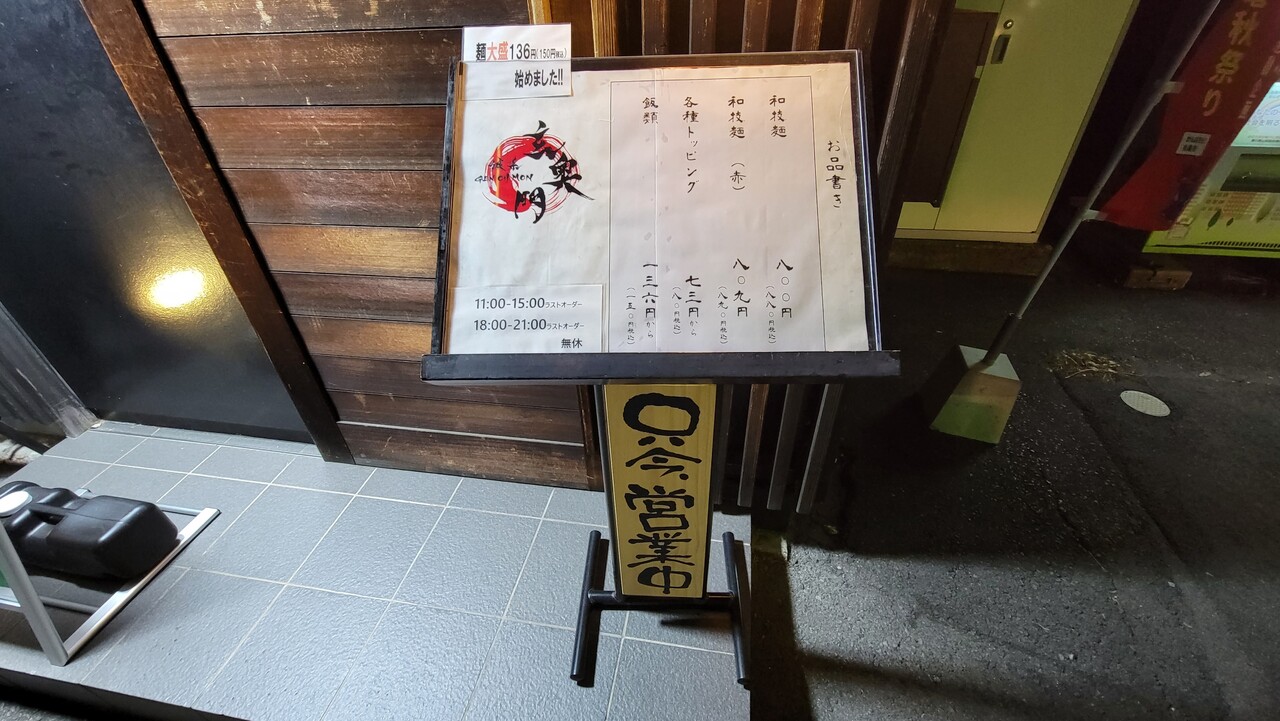 麺大盛136円(150円税込)
始めました!!
玄
奥
門
GENOUMON
11:00-15:00ラストオーダー
18:00-21:00ラストオーダー
無休
お品書き
和後麺 八〇〇円
(八八〇円税込)
和後麺(赤) 八〇九円
(八九〇円税込)
各種トッピング 七三円から
(八〇円税込)
飯類 一三六円から
(一五〇円税込)
只今、営業中
秋祭り